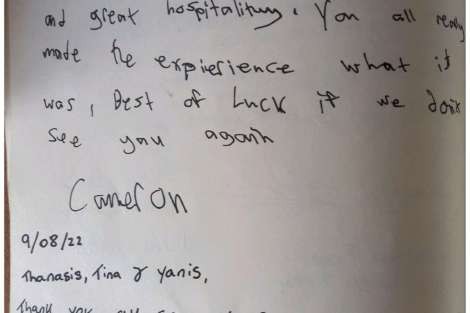 and great hospitalituy. You all really
made the expierience what it
was, Best of Luck if we don't
see you again
Cameron
9/08/22
Thanasis, Tina & Yanis,
Thank you all